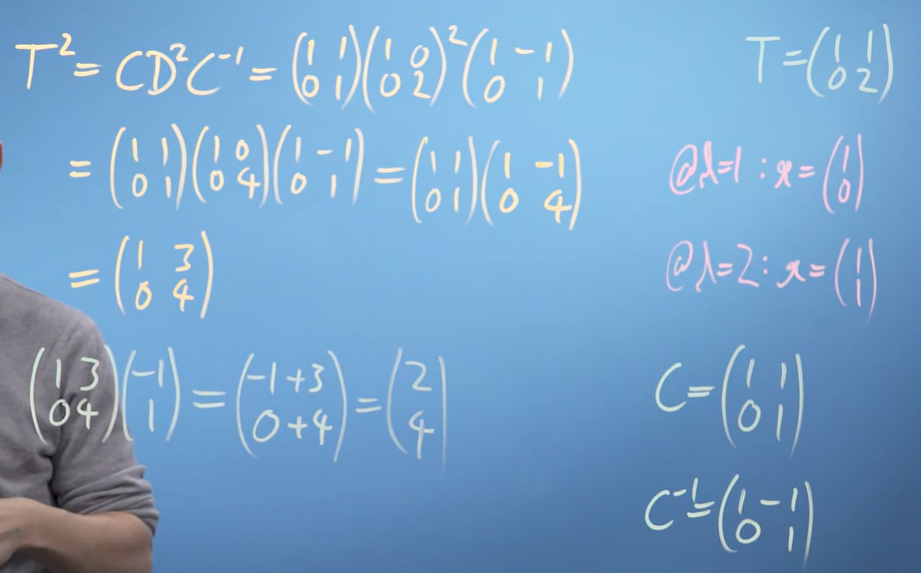 T² = CD²C⁻¹ = (1 1; 0 1)(1 0; 0 2)²(1 -1; 0 1)
= (1 1; 0 1)(1 0; 0 4)(1 -1; 0 1) = (1 1; 0 1)(1 -1; 0 4)
= (1 3; 0 4)
(1 3; 0 4)(-1; 1) = (-1+3; 0+4) = (2; 4)
T = (1 1; 0 2)
@λ=1 : x = (1; 0)
@λ=2 : x = (1; 1)
C = (1 1; 0 1)
C⁻¹ = (1 -1; 0 1)